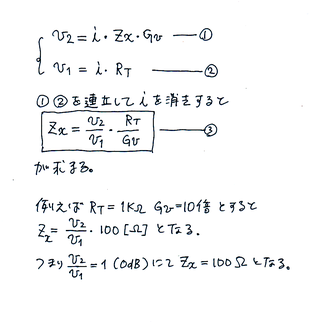 v₂ = i・Zx・Gv —①
v₁ = i・R_T —②
①②を連立してiを消去すると
Zx = v₂/v₁・R_T/Gv —③
が求まる。
例えば R_T=1KΩ Gv=10倍とすると
Zx = v₂/v₁・100 [Ω] となる。
つまり v₂/v₁=1 (0dB)にて Zx=100Ωとなる。